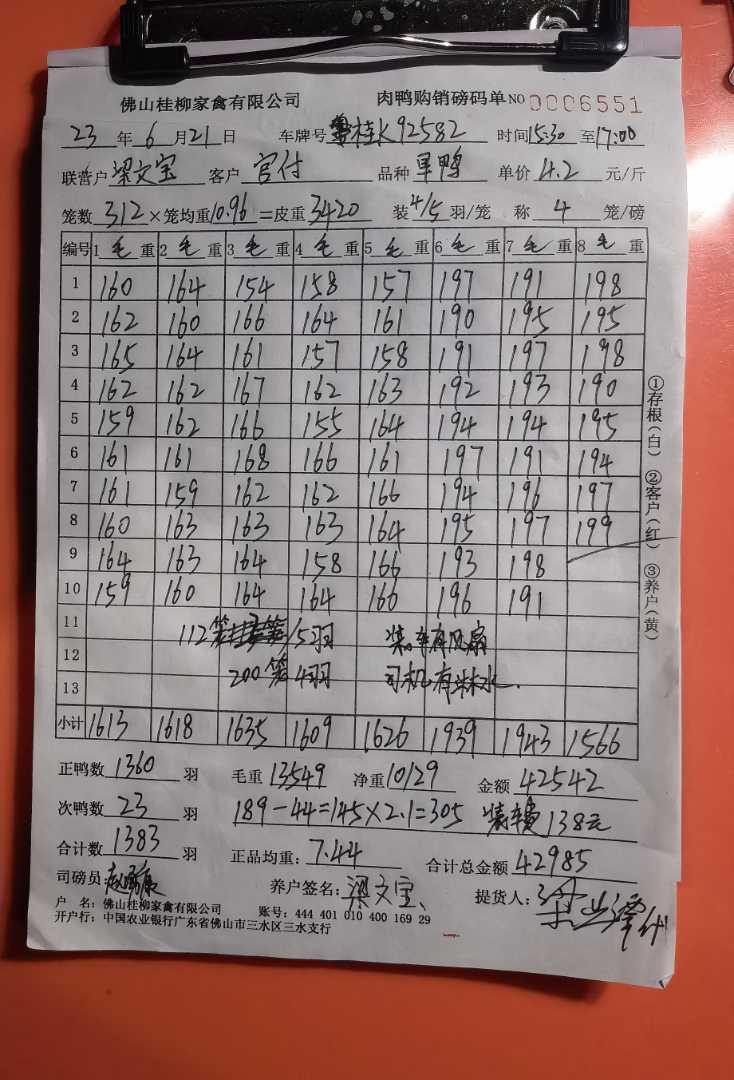 佛山桂柳家禽有限公司 肉鸭购销磅码单 NO 0006551
23 年 6 月 21 日 车牌号 桂K92582 时间 15:30 至 17:00
联营户 梁文宝 客户 官付 品种 旱鸭 单价 4.2 元/斤
笼数 312 ×笼均重 10.96 =皮重 3420 装 4/5 羽/笼 称 4 笼/磅
编号 1 毛 重 2 毛 重 3 毛 重 4 毛 重 5 毛 重 6 毛 重 7 毛 重 8 毛 重
1 160 164 154 158 157 197 191 198
2 162 160 166 164 161 190 195 195
3 165 164 161 157 158 191 197 198
4 162 162 167 162 163 192 193 190
5 159 162 166 155 164 194 194 195
6 161 161 168 166 161 197 191 194
7 161 159 162 162 166 194 196 197
8 160 163 163 163 164 195 197 199
9 164 163 164 158 166 193 198
10 159 160 164 164 166 196 191
11 112笼 5羽 装车有风扇
12 200笼 4羽 司机有淋水.
13
小计 1613 1618 1635 1609 1626 1939 1943 1566
①存根(白) ②客户(红) ③养户(黄)
正鸭数 1360 羽 毛重 13549 净重 10129 金额 42542
次鸭数 23 羽 189-44=145×2.1=305 装车费138元
合计数 1383 羽 正品均重: 7.44 合计总金额 42985
司磅员: 养户签名: 梁文宝 提货人:
户 名: 佛山桂柳家禽有限公司 账号: 444 401 010 400 169 29
开户行: 中国农业银行广东省佛山市三水区三水支行